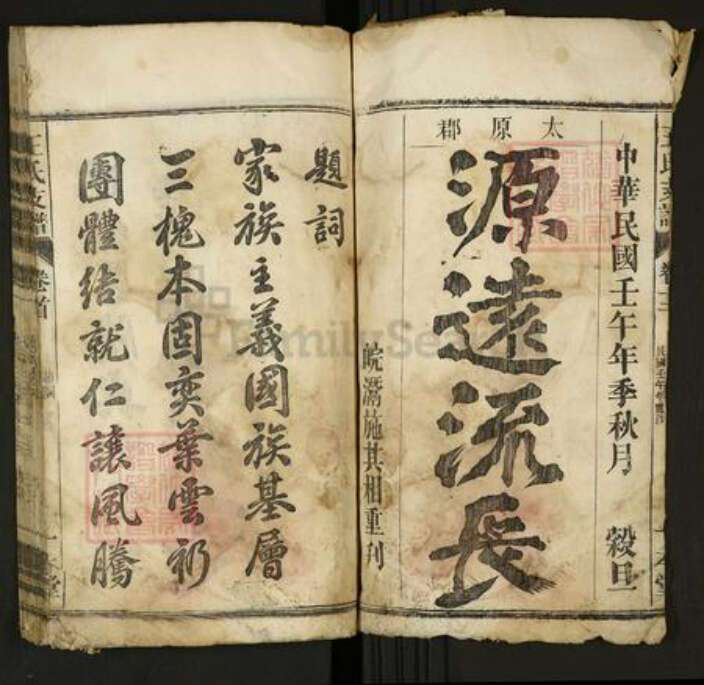 太原郡
中華民國壬午年季秋月 穀旦
源遠流長
皖潛施其相重刊
題詞
家族主義國族基層
三槐本固奕葉雲礽
團體結就仁讓風騰
王氏支譜 卷首
FamilySe